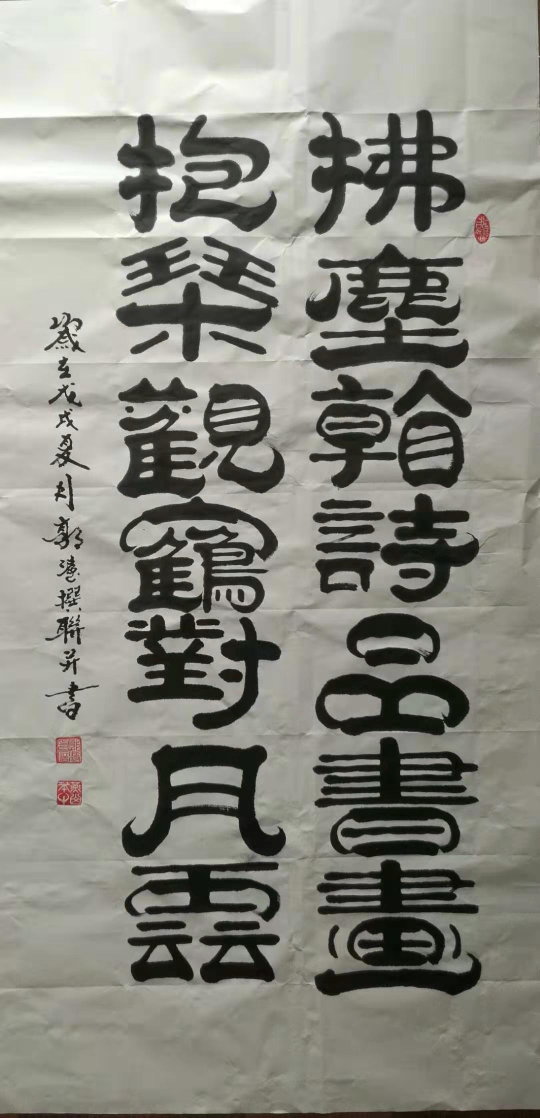 拂塵翰詩品書畫
抱琴觀鶴對月雲
歲在戊戌夏月郭憲撰聯并書